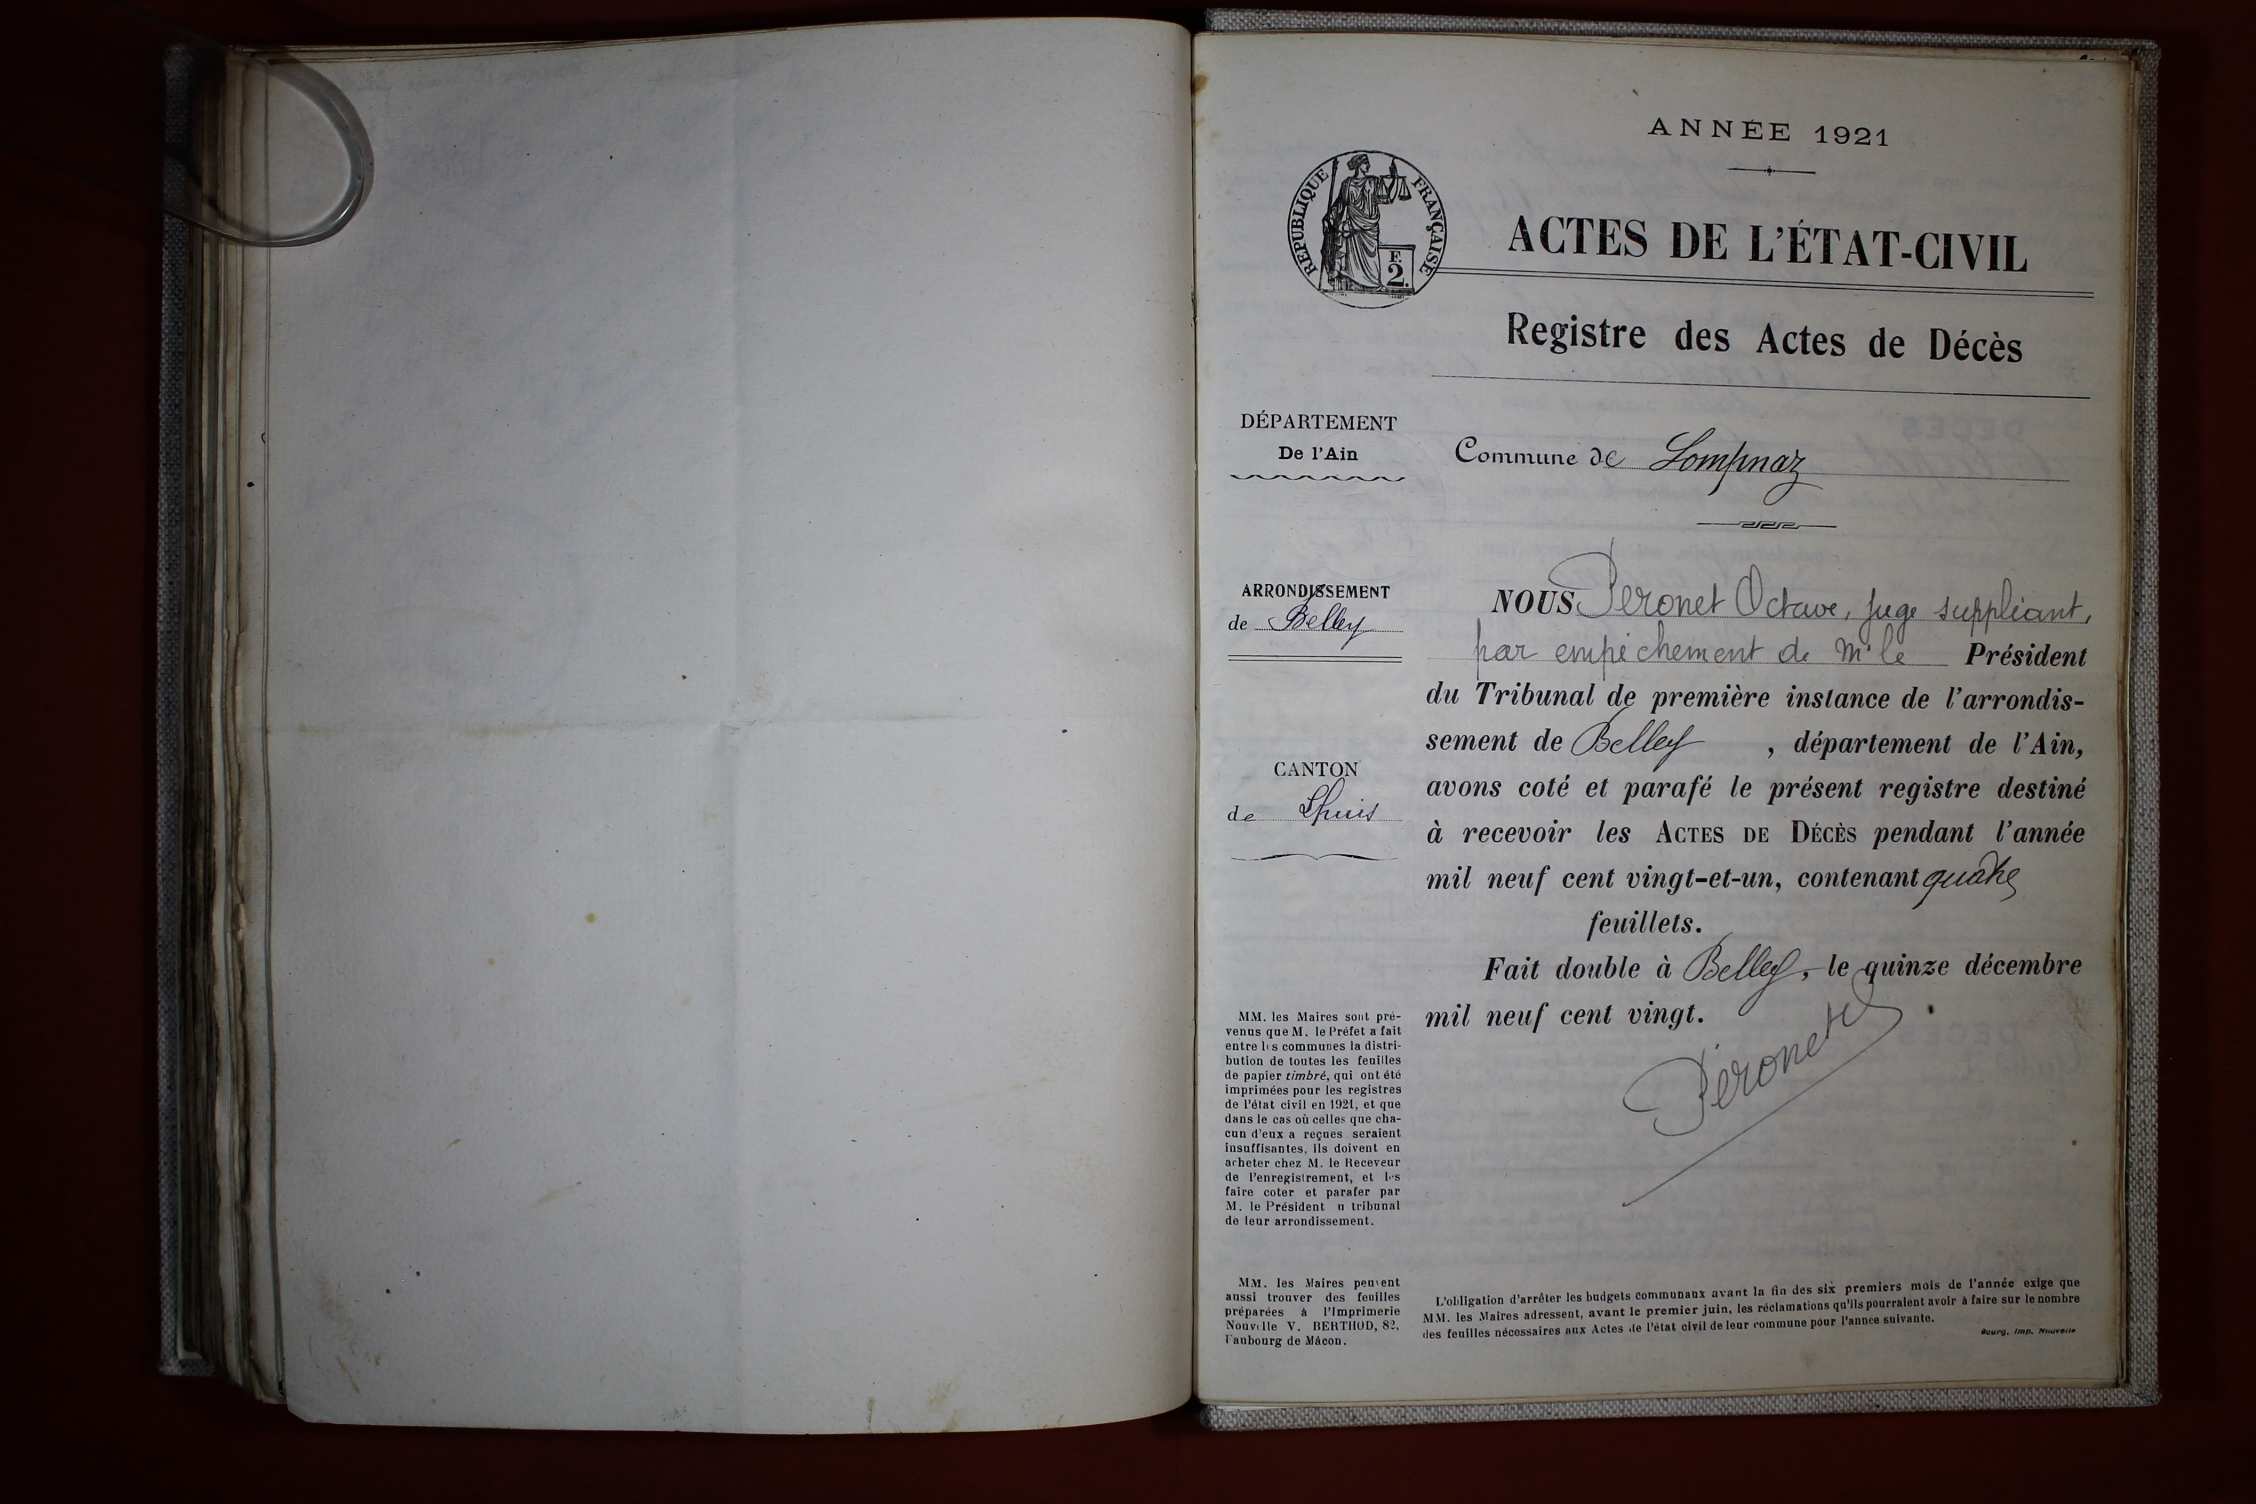 ANNÉE 1921
RÉPUBLIQUE FRANÇAISE
F.
2.
ACTES DE L'ÉTAT-CIVIL
Registre des Actes de Décès
DÉPARTEMENT
De l'Ain
Commune de Lompnaz
ARRONDISSEMENT
de Belley
CANTON
de Lhuis
NOUS Peronet Octave, juge suppléant,
par empêchement de Mr le Président
du Tribunal de première instance de l'arrondis-
sement de Belley, département de l'Ain,
avons coté et parafé le présent registre destiné
à recevoir les ACTES DE DÉCÈS pendant l'année
mil neuf cent vingt-et-un, contenant quatre
feuillets.
Fait double à Belley, le quinze décembre
mil neuf cent vingt.
Péronet
MM. les Maires sont pré-
venus que M. le Préfet a fait
entre les communes la distri-
bution de toutes les feuilles
de papier timbré, qui ont été
imprimées pour les registres
de l'état civil en 1921, et que
dans le cas où celles que cha-
cun d'eux a reçues seraient
insuffisantes, ils doivent en
acheter chez M. le Receveur
de l'enregistrement, et les
faire coter et parafer par
M. le Président u tribunal
de leur arrondissement.
MM. les Maires peuvent
aussi trouver des feuilles
préparées à l'Imprimerie
Nouvelle V. BERTHOD, 82,
Faubourg de Mâcon.
L'obligation d'arrêter les budgets communaux avant la fin des six premiers mois de l'année exige que
MM. les Maires adressent, avant le premier juin, les réclamations qu'ils pourraient avoir à faire sur le nombre
des feuilles nécessaires aux Actes de l'état civil de leur commune pour l'année suivante.
Bourg, Imp. Nouvelle